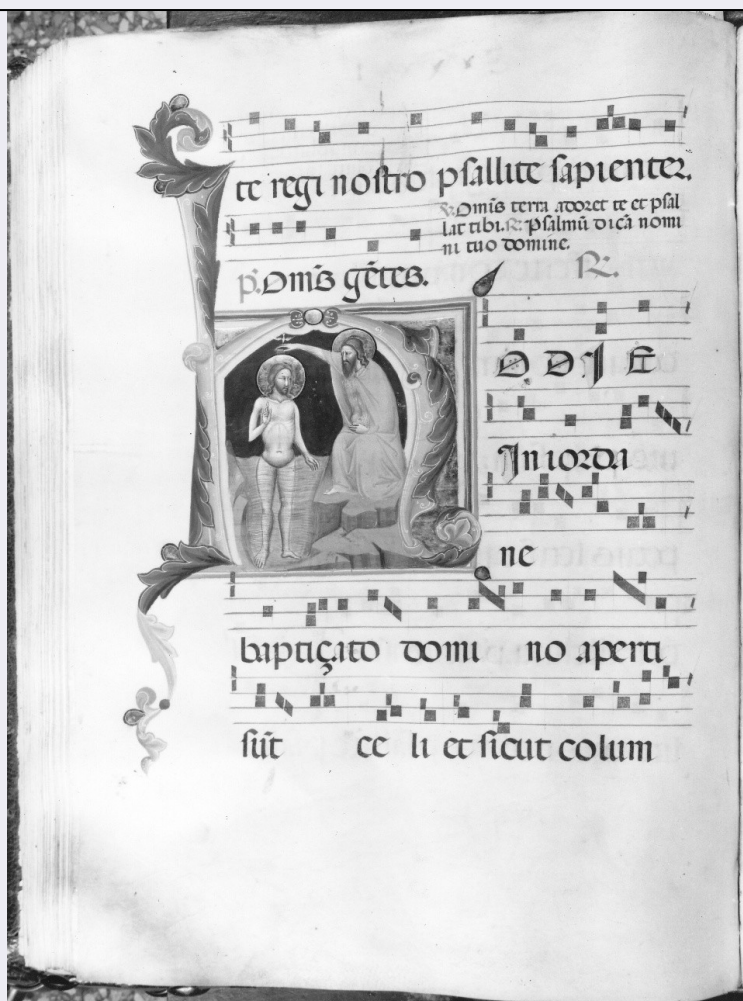 te regi nostro psallite sapienter.
℣. Omīs terra adoret te et psal
lat tibi. ℟. Psalmū dicā nomi
ni tuo domine.
p̄. Omīs gētes.
℟.
HODIE
In iorda
ne
baptiçato domi no aperti
sūt ce li et sicut colum